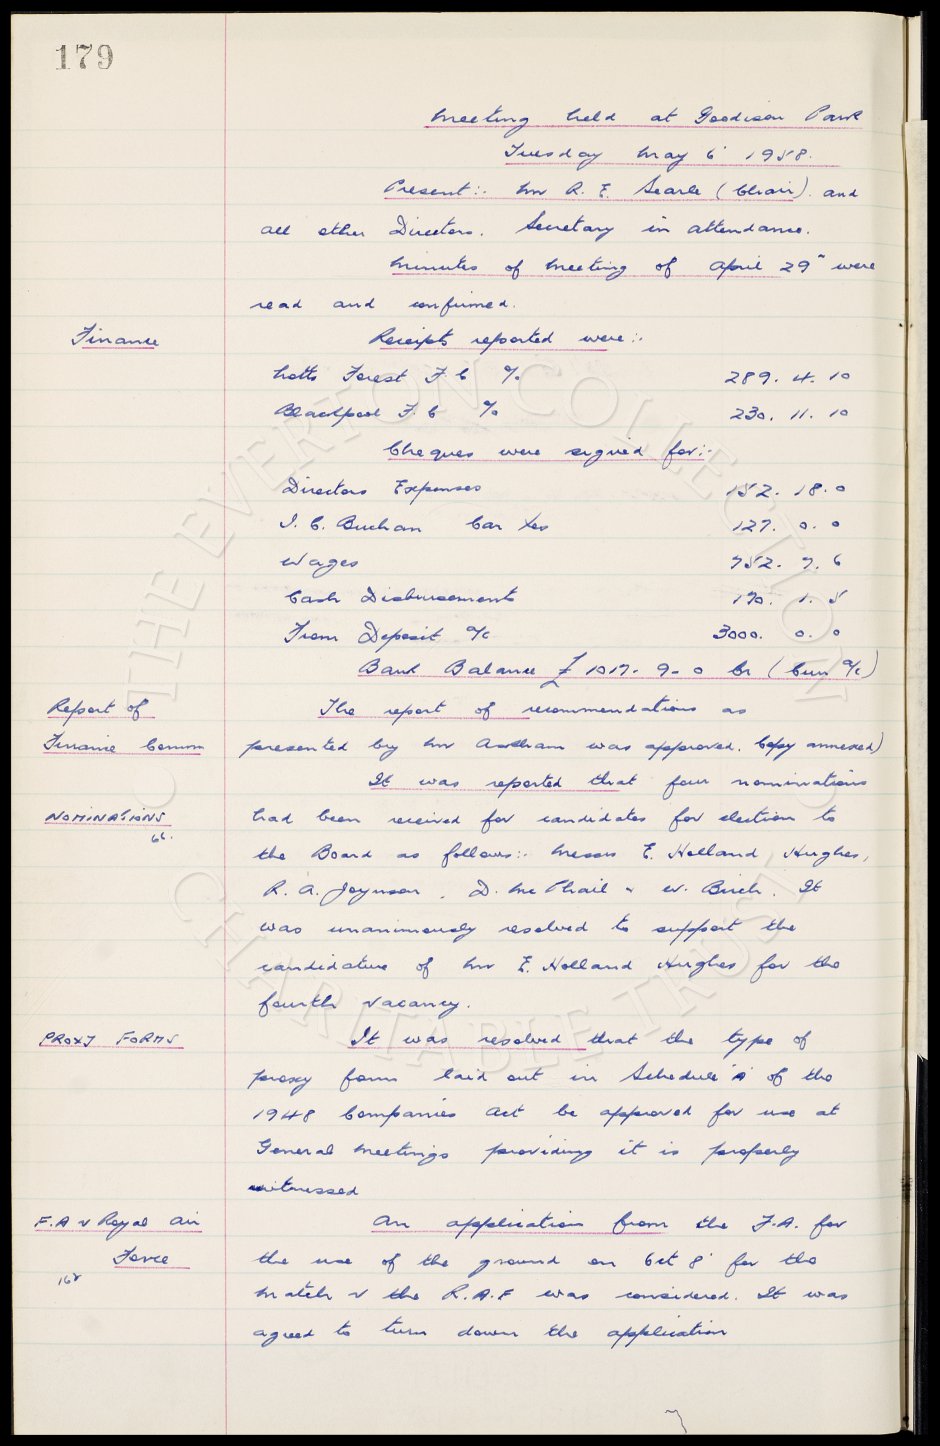 179
Meeting held at Goodison Park
Tuesday May 6' 1958.
Present:. Mr R. E. Searle (Chair). and
all other Directors. Secretary in attendance.
Minutes of Meeting of April 29" were
read and confirmed.
Finance Receipts reported were:.
Notts Forest F. C % 289. 4. 10
Blackpool F. C % 230. 11. 10
Cheques were signed for:.
Directors Expenses 152. 18. 0
I. C. Buchan Car Xes 127. 0. 0
Wages 752. 7. 6
Cash Disbursements 170. 1. 5
From Deposit a/c 3000. 0. 0
Bank Balance £ 1017. 9. 0 Cr (Curr a/c)
Report of The report of recommendations as
Finance Comm presented by Mr Askham was approved. Copy annexed)
It was reported that four nominations
NOMINATIONS had been received for candidates for election to
66. the Board as follows:. Messrs E. Holland Hughes,
R. A. Joynson, D. McPhail & W. Birch. It
was unanimously resolved to support the
candidature of Mr E. Holland Hughes for the
fourth vacancy.
PROXY FORMS It was resolved that the type of
proxy form laid out in Schedule 'A' of the
1948 Companies Act be approved for use at
General Meetings providing it is properly
witnessed
F.A v Royal Air An application from the F.A. for
Force the use of the ground on Oct 8' for the
168 Match v the R.A.F was considered. It was
agreed to turn down the application
© THE EVERTON COLLECTION
CHARITABLE TRUST